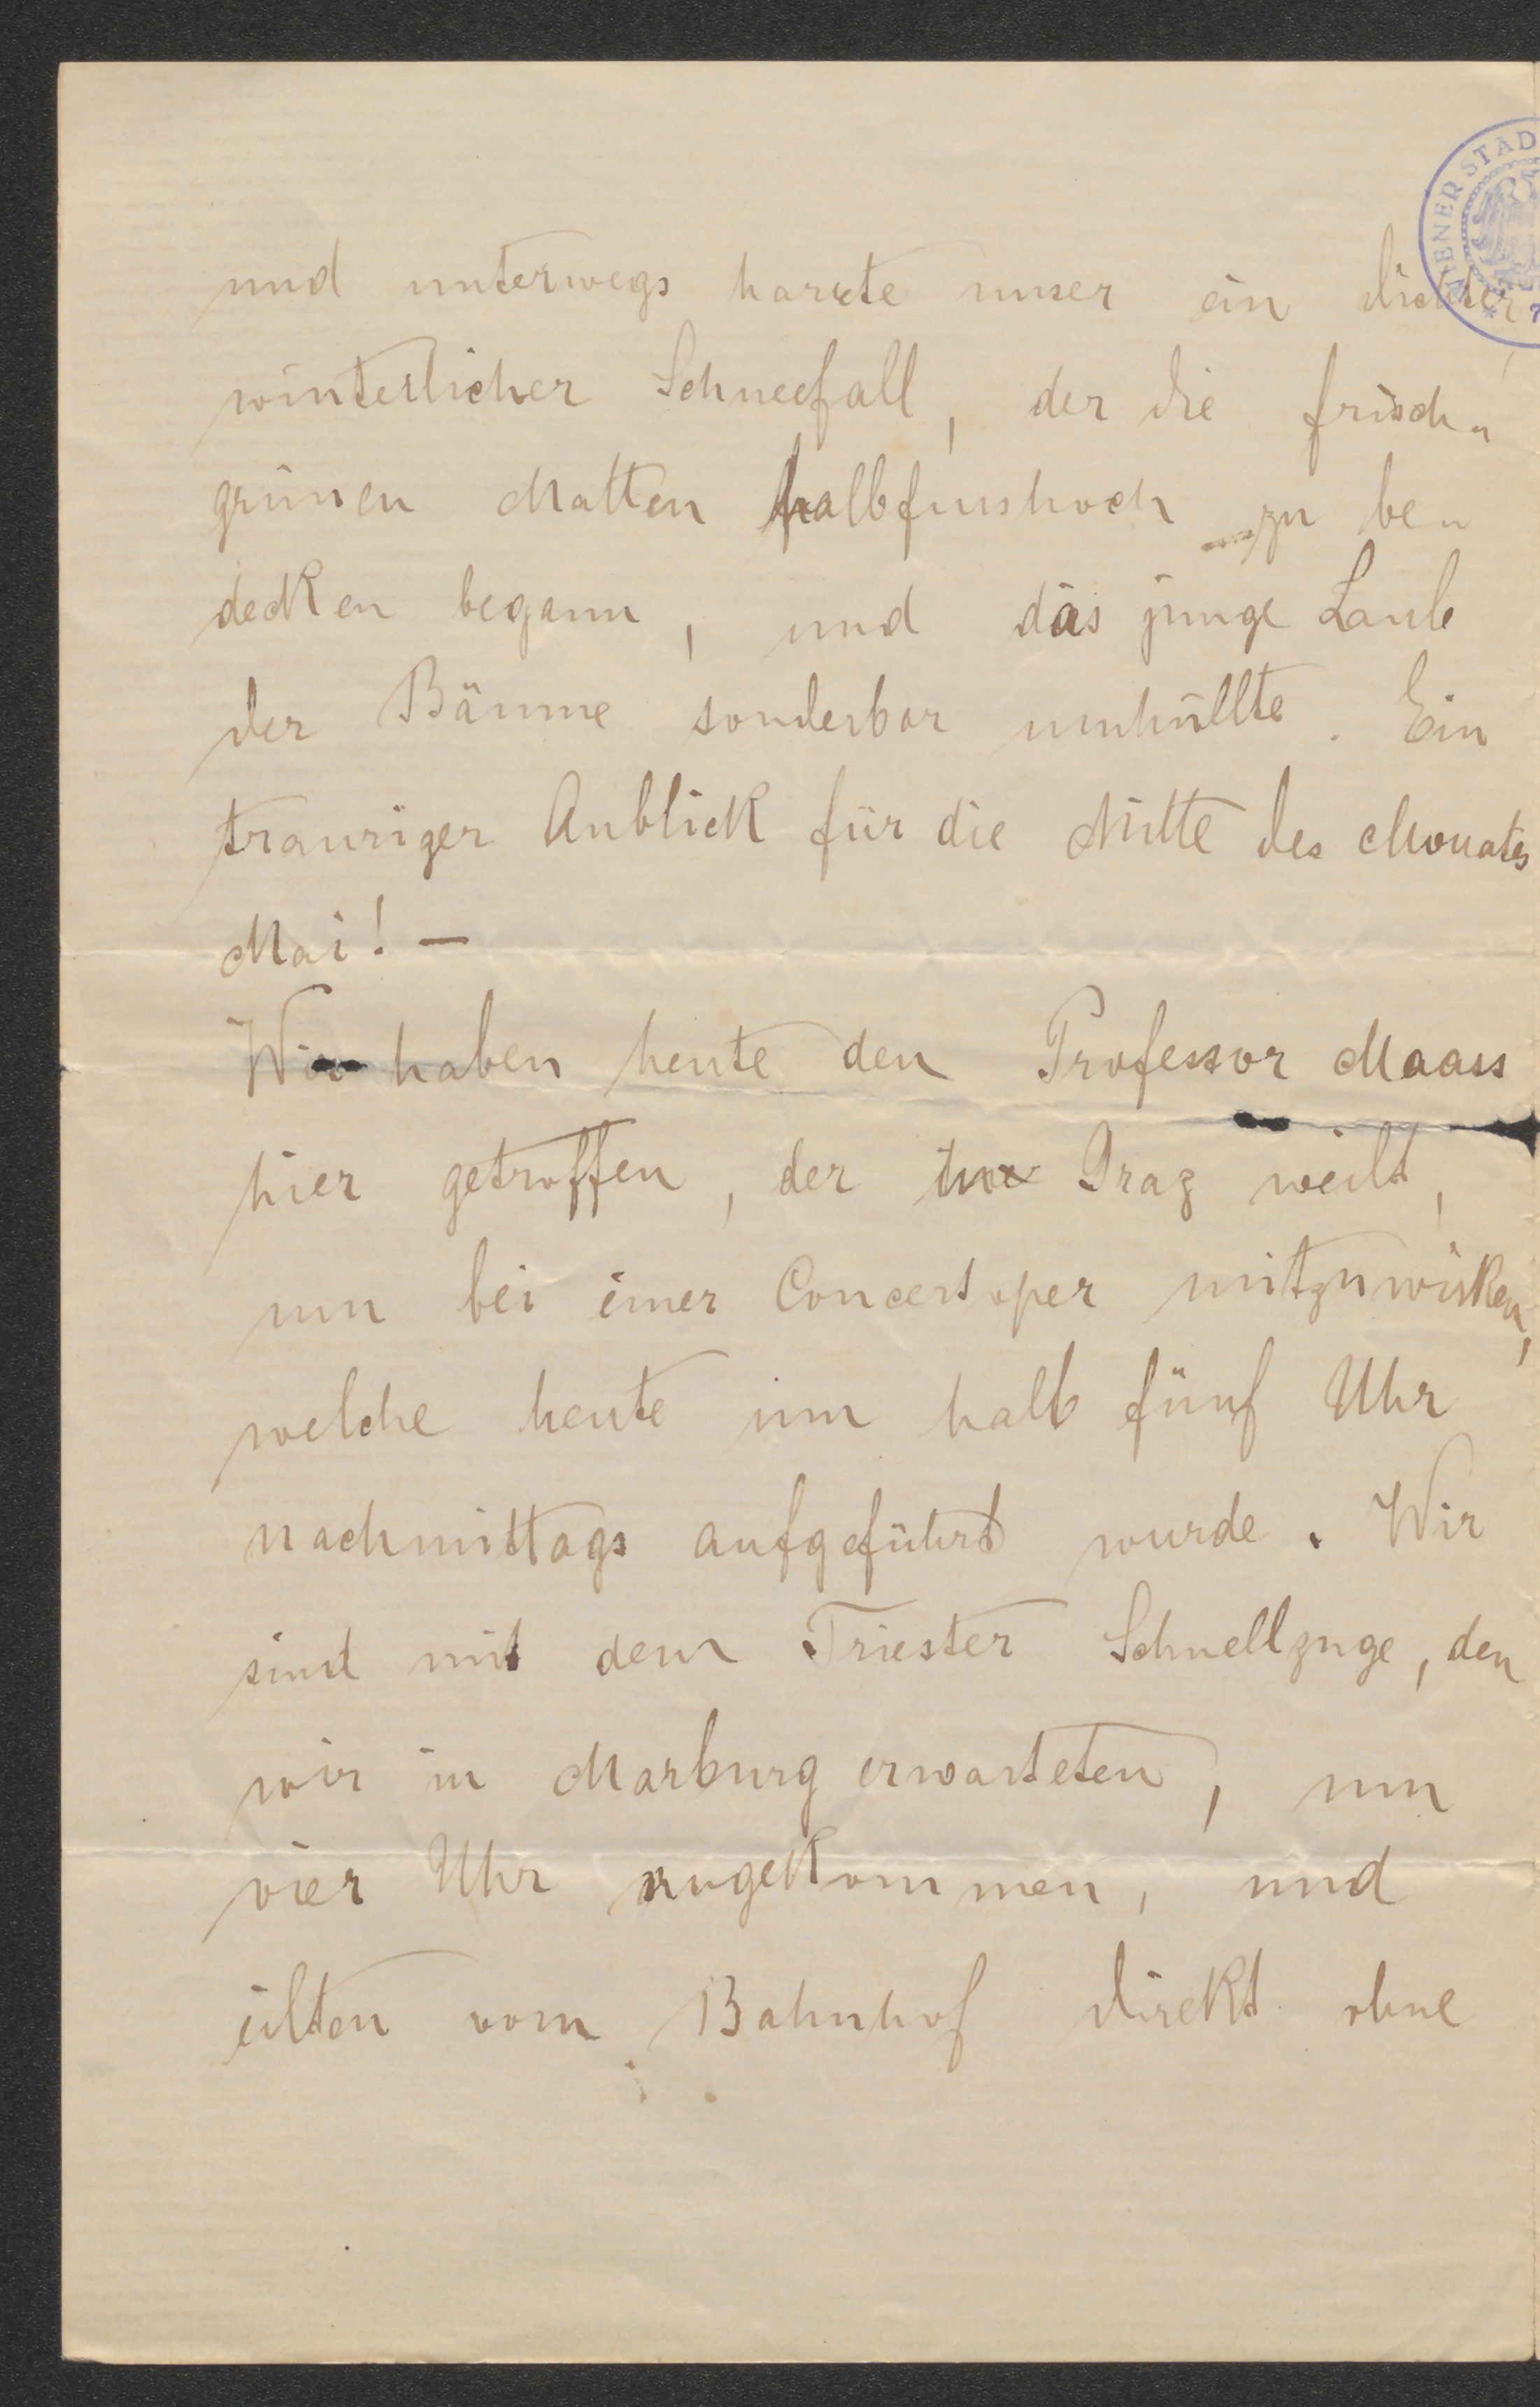 und unterwegs harrte unser ein dichter,
winterlicher Schneefall, der die frisch-
grünen Matten halbfusshoch zu be-
decken begann, und das junge Laub
der Bäume sonderbar umhüllte. Ein
trauriger Anblick für die Mitte des Monates
Mai! —
Wir haben heute den Professor Maass
hier getroffen, der in Graz weilt,
um bei einer Concertoper mitzuwirken,
welche heute um halb fünf Uhr
nachmittags aufgeführt wurde. Wir
sind mit dem Triester Schnellzuge, den
wir in Marburg erwarteten, um
vier Uhr angekommen, und
eilten vom Bahnhof direkt ohne
WIENER STÄD
* 7